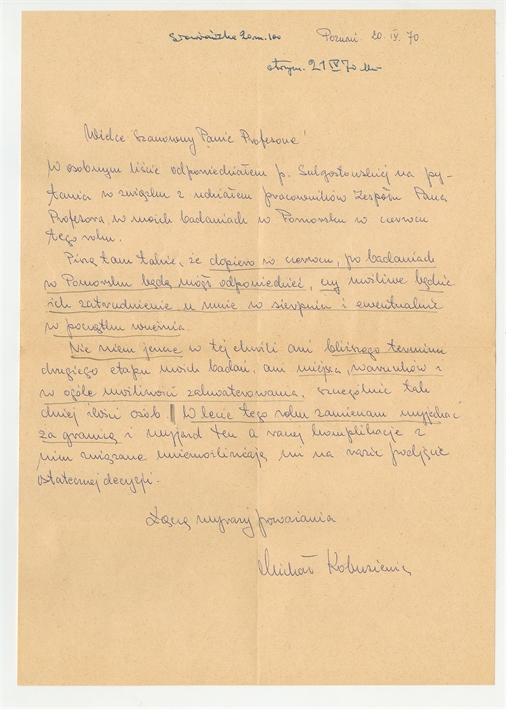 Poznań 20.IV.70
otrzym. 21 IV 70
Wielce Szanowny Panie Profesorze!
W osobnym liście odpowiedziałem p. Sulgostowskiej na py-
tania w związku z udziałem pracowników Zespołu Pana
Profesora w moich badaniach w Pomorsku w czerwcu
tego roku.
Piszę tam także, że dopiero w czerwcu, po badaniach
w Pomorsku będę mógł odpowiedzieć, czy możliwe będzie
ich zatrudnienie u mnie w sierpniu i ewentualnie
w początku września.
Nie wiem jeszcze w tej chwili ani bliższego terminu
drugiego etapu moich badań, ani miejsca, warunków i
w ogóle możliwości zakwaterowania, szczególnie tak
dużej ilości osób. W lecie tego roku zamierzam wyjechać
za granicę i wyjazd ten a raczej komplikacje z
nim związane uniemożliwiają mi na razie podjęcie
ostatecznej decyzji.
Łączę wyrazy poważania
Michał Kobusiewicz